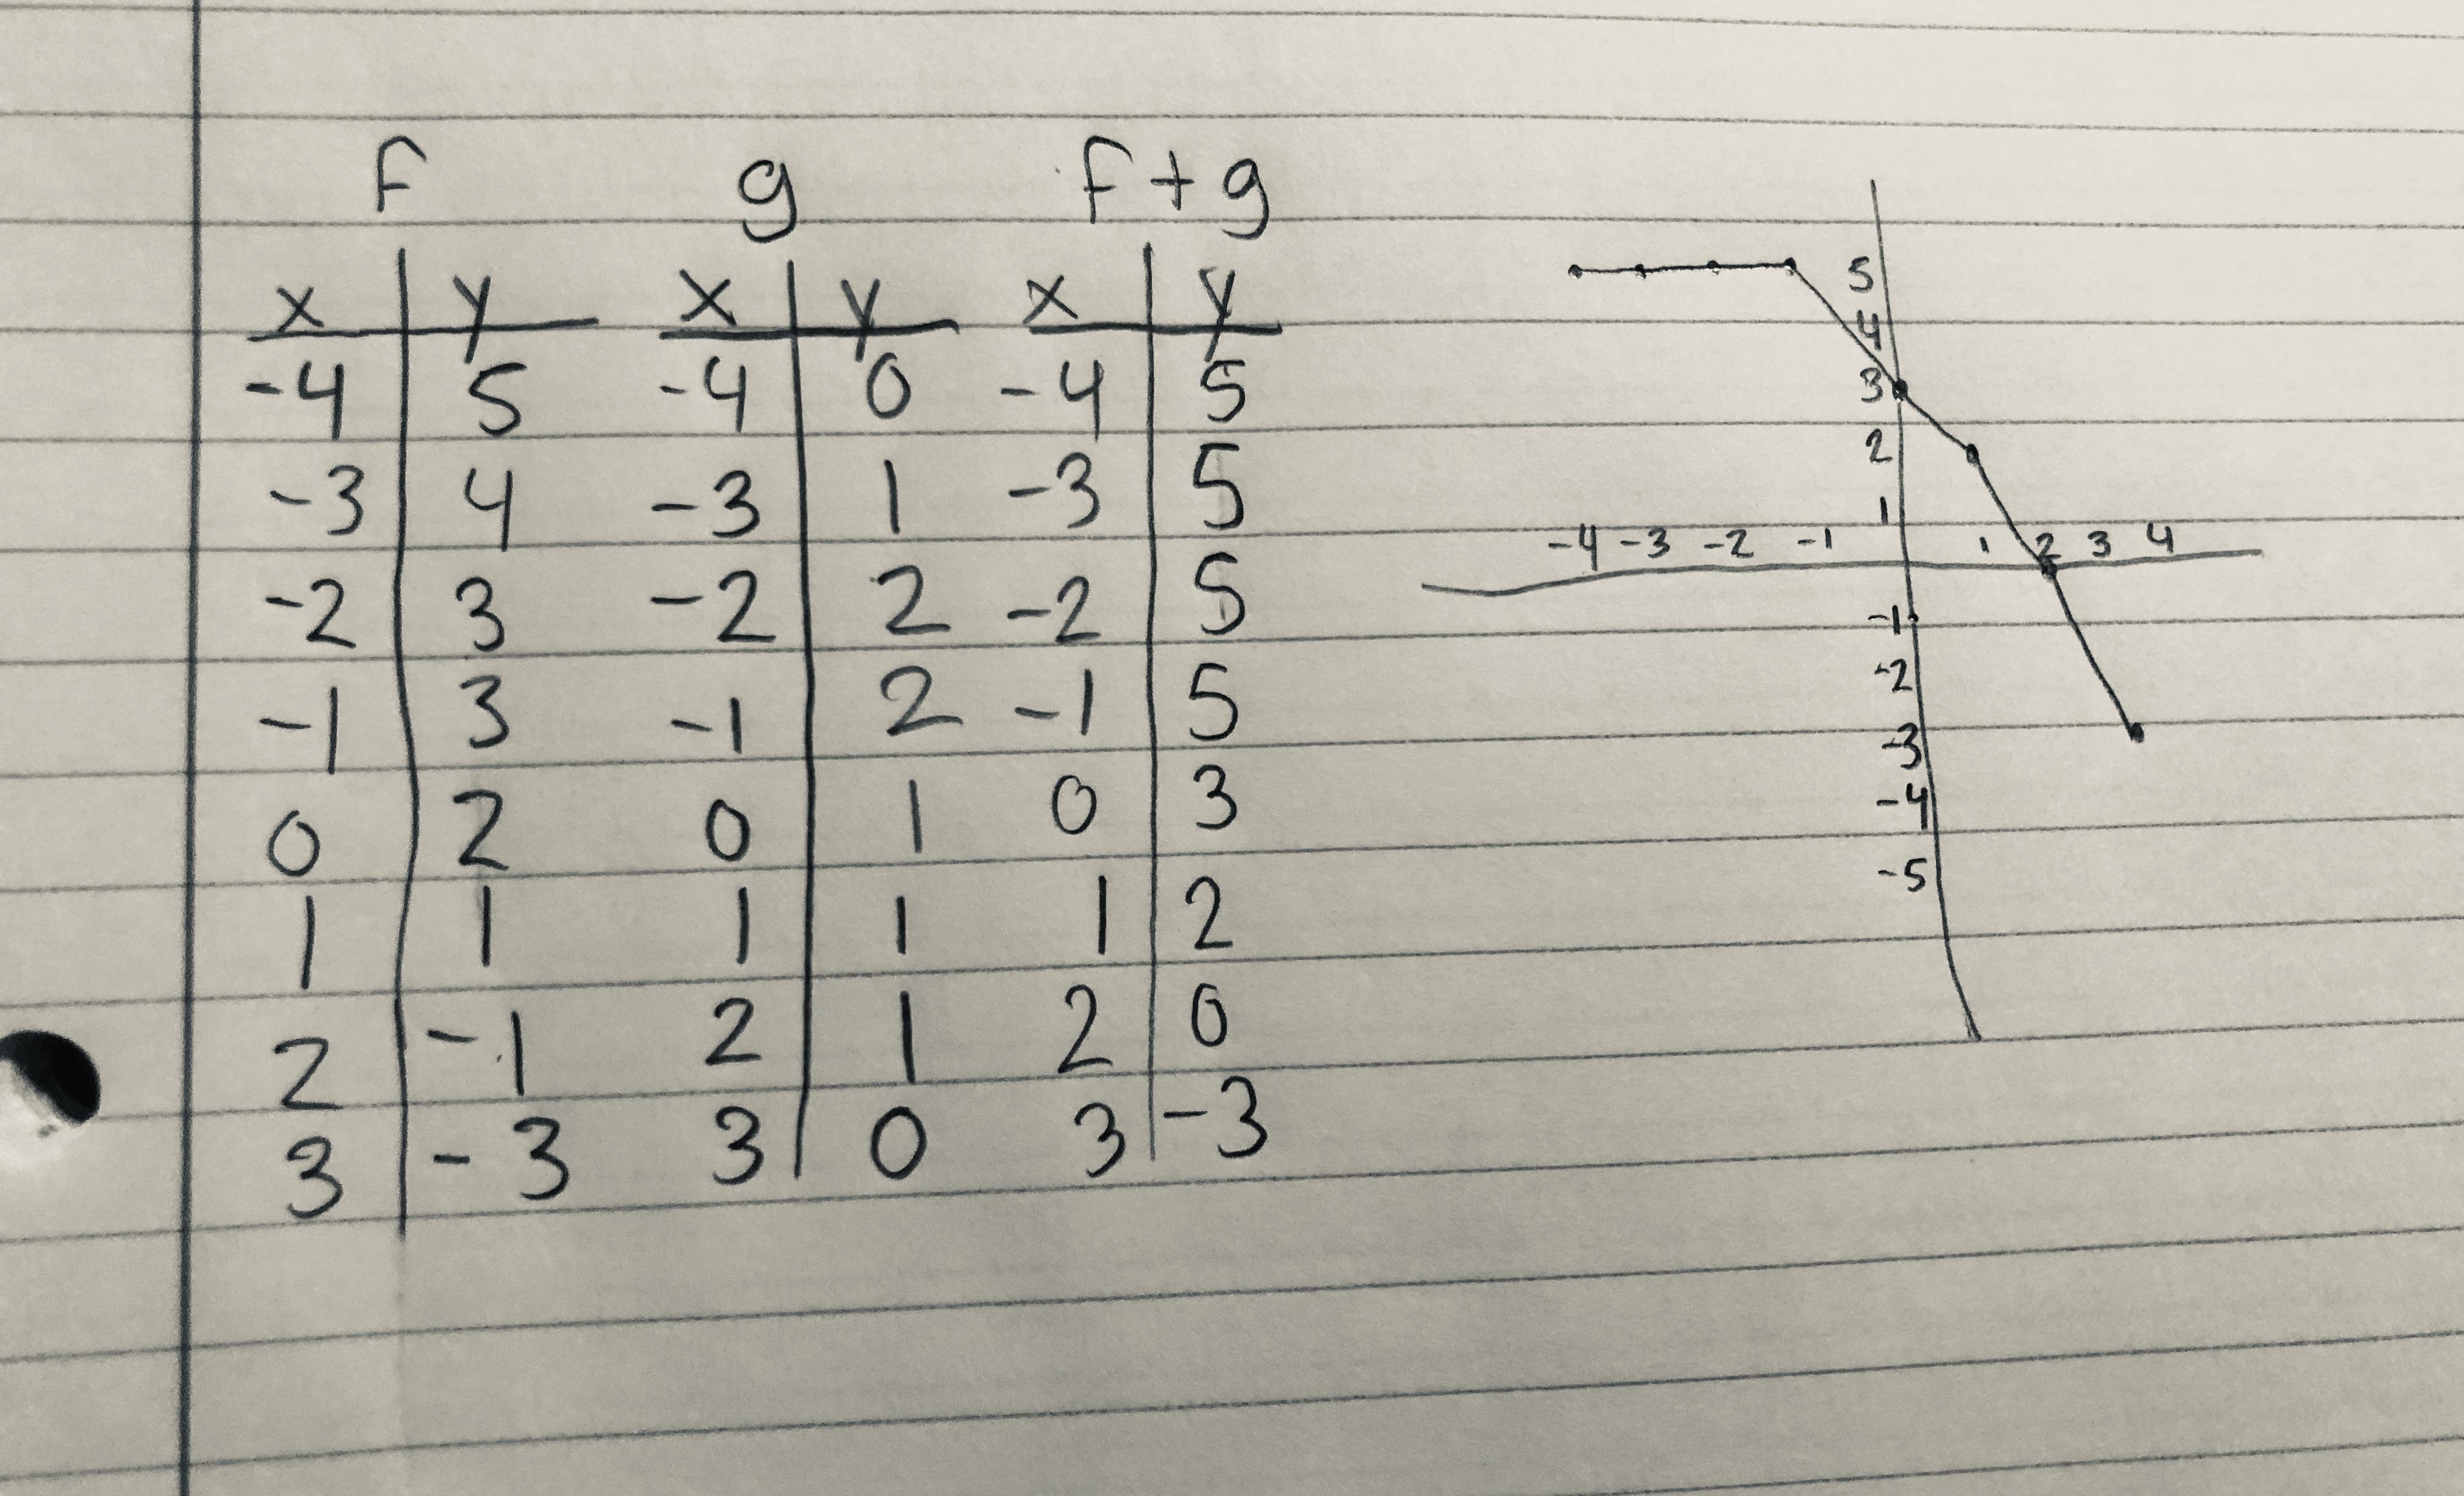 f g f + g
x y x y x y
-4 5 -4 0 -4 5
-3 4 -3 1 -3 5
-2 3 -2 2 -2 5
-1 3 -1 2 -1 5
0 2 0 1 0 3
1 1 1 1 1 2
2 -1 2 1 2 0
3 -3 3 0 3 -3
5
4
3
2
1
-4 -3 -2 -1 1 2 3 4
-1
-2
-3
-4
-5